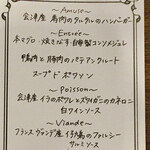 ~Amuse~
会津産 馬肉のタルタルのハンバーガー
~Entrée~
本マグロ・焼きなす・自家製コンソメジュレ
鴨肉と豚肉のパテアンクルート
スープ ド ポワソン
~Poisson~
会津産イワナのポワレとズワイガニのカネロニ
白ワインソース
~Viande~
フランス ヴァンデ産 仔鳩のファルシー
サルミソース